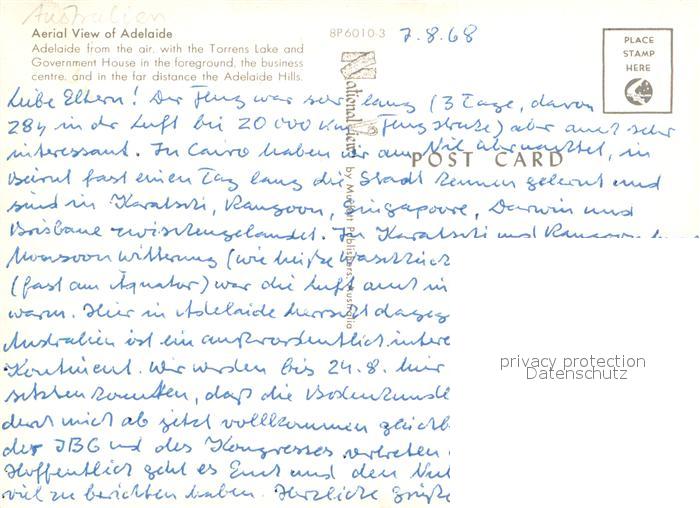 Australien
Aerial View of Adelaide
Adelaide from the air, with the Torrens Lake and
Government House in the foreground, the business
centre, and in the far distance the Adelaide Hills.
8P6010-3
7.8.68
PLACE
STAMP
HERE
National View
by Mucher Publishers, Australia
POST CARD
Liebe Eltern! Der Flug war sehr lang (3 Tage, davon
28h in der Luft bei 20 000 km Flugstraße) aber auch sehr
interessant. In Cairo haben wir am Nil übernachtet, in
Beirut fast einen Tag lang die Stadt kennen gelernt und
sind in Karatschi, Rangoon, Singapoore, Darwin und
Brisbane zwischengelandet. In Karatschi und Rangoon
Monsoon witterung (wie heiße Waschküch
(fast am Äquator) war die Luft auch in
warm. Hier in Adelaide herrscht dageg
Australien ist ein außerordentlich intere
Kontinent. Wir werden bis 24.8. hier
daß die Bodenkunde
mich ab jetzt vollkommen gleichb
der IBG und des Kongresses vertreten
Hoffentlich geht es Euch und den
viel zu berichten haben. Herzliche Grüße
privacy protection
Datenschutz